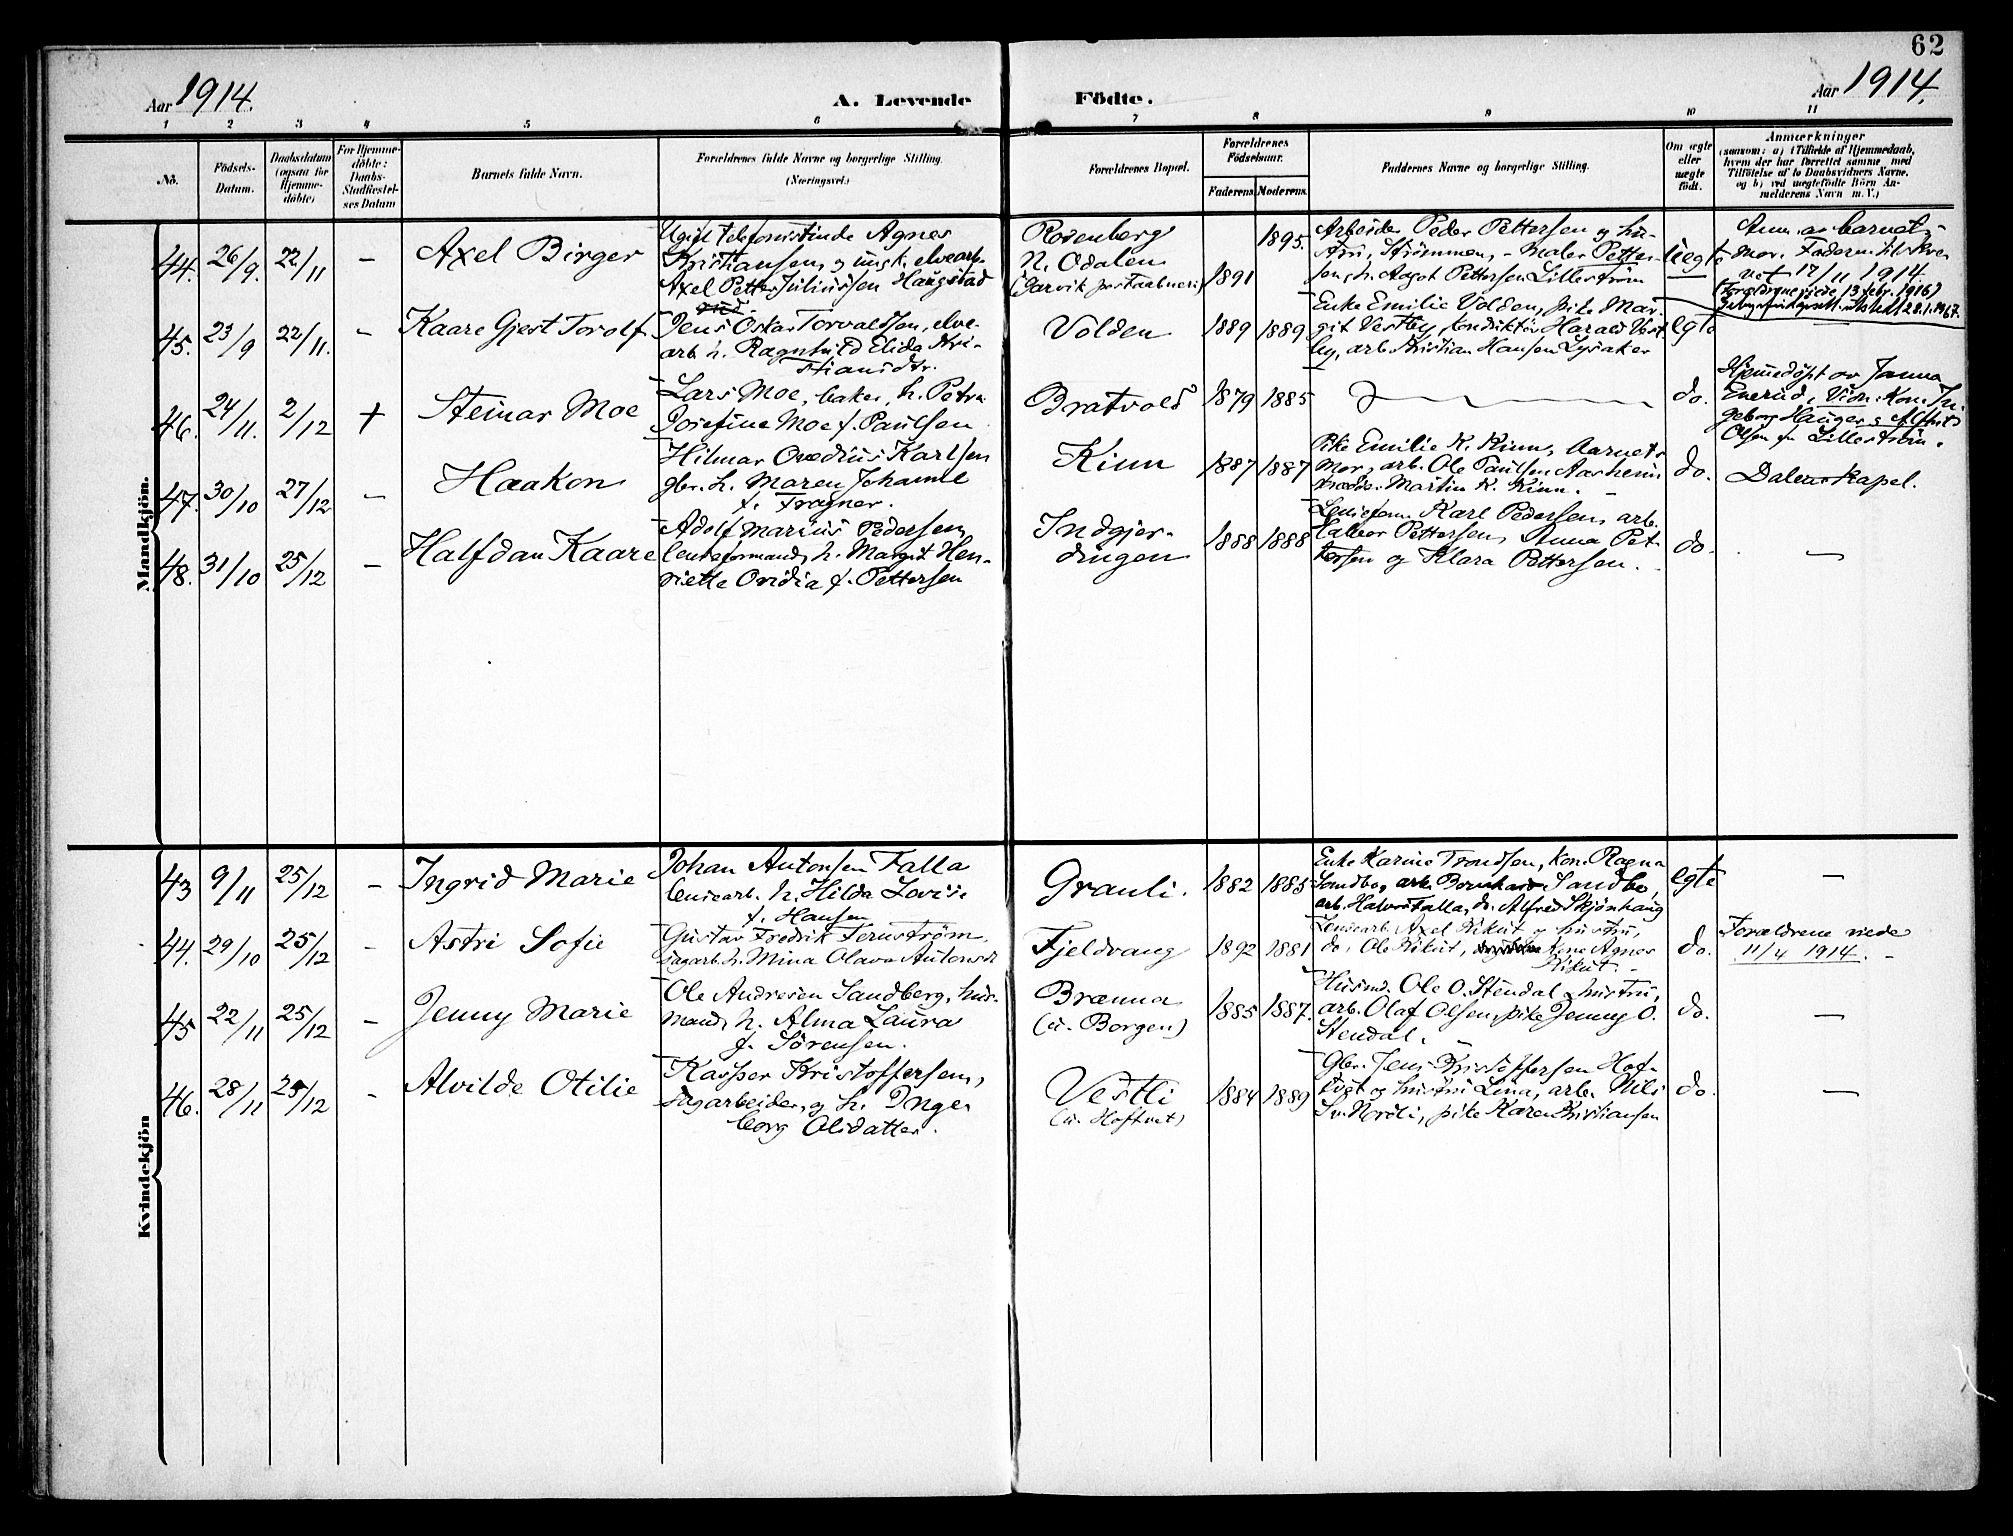 62
Aar 1914.
A. Levende Födte.
Aar 1914.
1 2 3 4 5 6 7 8 9 10 11
No.
Födsels-
Datum.
Daabsdatum
(ogsaa for
Hjemme-
döbte)
For Hjemme-
döbte:
Daabs-
Stadfæstel-
ses Datum
Barnets fulde Navn.
Forældrenes fulde Navne og borgerlige Stilling.
(Næringsvei.)
Forældrenes Bopæl.
Forældrenes
Födselsaar.
Faderens. Moderens.
Faddernes Navne og borgerlige Stilling.
Om ægte
eller
uægte
født.
Anmærkninger
(saasom: a) i Tilfælde af Hjemmedaab,
hvem der har forrettet samme, med
Tilföielse af to Daabsvidners Navne,
og b) ved uægtefödte Börn An-
melderens Navn m. V.)
Mandkjön.
44. 26/9. 22/11 – Axel Birger
Ugift telefonistinde Agnes
Kristiansen, og ungk. elvearb.
Axel Petter Juliussen Haugstad
Rosenberg
N. Odalen
1891 1895.
Arbeider Peder Pettersen og hu-
stru, Strømmen, – maler Petter-
sen, Aagot Pettersen Lillestrøm
uegte
Anm. av barnets
mor. Faderen tilskre-
vet 17/11 1914
(Foreldrene viede 13 febr. 1916)
45. 23/9 22/11. – Kaare Gjert Torolf
Jens Oskar Torvaldsen, elve-
arb. h. Ragnhild Elida Kri-
stiansdtr.
Volden 1889 1889
Enke Emilie Volden, pike Mar-
git Vestby, konduktør Harald Vest-
by, arb. Kristian Hansen Lysaker
egte
46. 24/11. 2/12 + Steinar Moe
Lars Moe, baker, h. Petra
Josefine Moe f. Paulsen
Bratvold 1879 1885
do.
Hjemmedøpt av Janna
Enerud, Vidn. Kone In-
geborg Hauger og
Olsen Lillestrøm.
47. 30/10 27/12 – Haakon
Hilmar Ovedius Karlsen
gbr. h. Maren Johanne
f. Fragner.
Kinn 1887 1887
Pike Emilie K. Kinn, Barnets
Mor, arb. Ole Paulsen Aarheim
Martin K. Kinn. –
do. Dalens Kapel.
48. 31/10 25/12 – Halfdan Kaare
Adolf Marius Pedersen,
lenseformand, h. Margit Hen-
riette Ovidia f. Pettersen
Indgjer-
dingen
1888 1888
Lensefom. Karl Pedersen, arb.
Halvor Pettersen, Anna Pet-
tersen og Klara Pettersen.
do. –
Kvindekjön
43 9/11 25/12 – Ingrid Marie
Johan Antonsen Falla
lensearb. h. Hilda Lovise
f. Hansen
Grauli. 1882 1885
Enke Karine Trondsen, Kone Ragna
Sandbo, arb. Bernhard Sandbo,
arb. Halvor Falla, do. Alfred Skjønhaug
egte –
44. 29/10 25/12 – Astri Sofie
Gustav Fredrik Fernstrøm,
sagarb. h. Mina Olava Antonsdtr
Fjeldvang 1892 1881
Lensearb. Axel Kikut og hustru,
do. Ole Kikut, Kone Agnes
Kikut. –
do.
Forældrene viede
11/4 1914. –
45 22/11 25/12 – Jenny Marie
Ole Andresen Sandberg, hus-
mand, h. Alma Laura
f. Sørensen.
Brænna
(u. Borgen)
1885 1887.
Husmd. Ole O. Stendal, hustru,
arb. Olaf Olsen, pike Jenny O.
Stendal.
do. –
46. 28/11 25/12 – Alvilde Otilie
Kasper Kristoffersen,
sagarbeider, og h. Inge-
borg Olsdatter.
Vestli
(u. Hoftvet)
1884 1889
Gbr. Jens Kristoffersen Hof-
tvet og hustru Lina, arb. Nils
Nordli, pike Karen Kristiansen
do. –